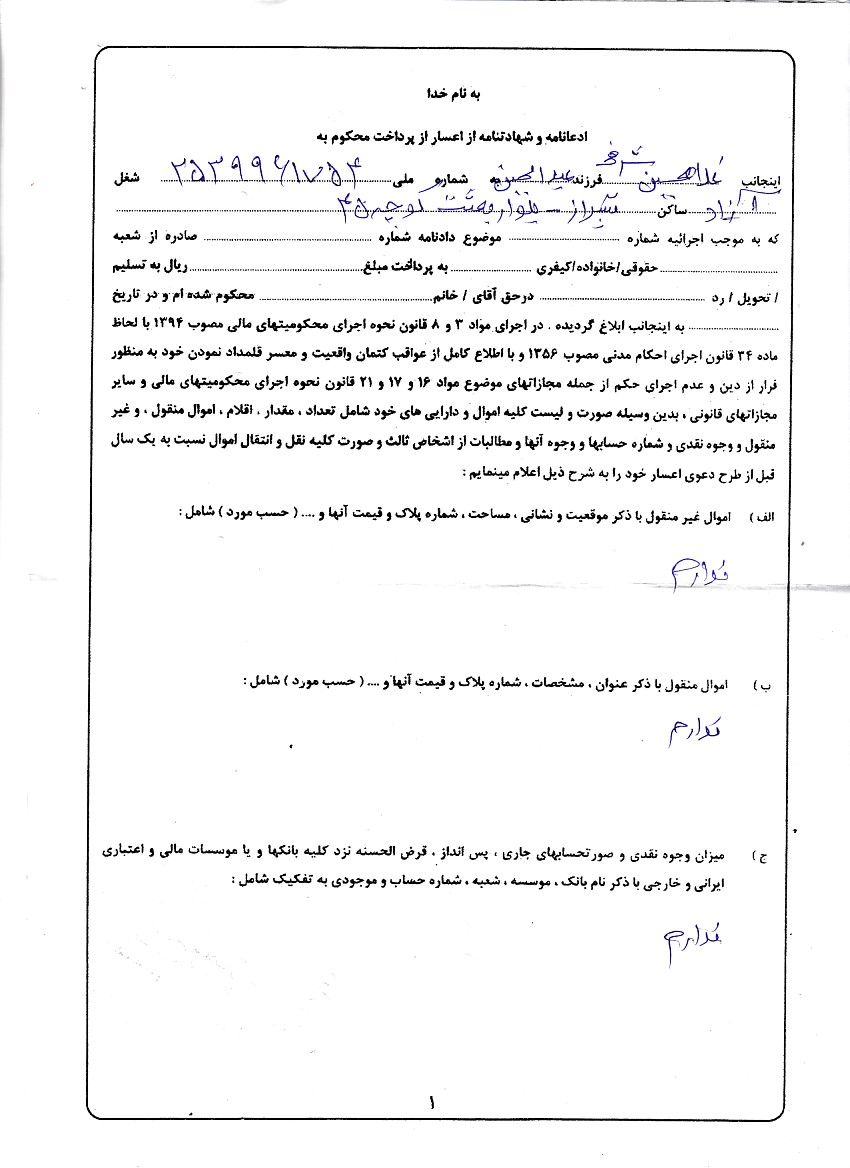 به نام خدا
ادعانامه و شهادتنامه از اعسار از پرداخت محکوم به
اینجانب غلامحسین شرفی فرزند عبدالحسین به شماره ملی ۲۵۳۹۹۶۱۷۵۴ شغل
آزاد ساکن شیراز - بلوار بعثت کوچه ۴۵
که به موجب اجرائیه شماره ........ موضوع دادنامه شماره ........ صادره از شعبه
........ حقوقی/خانواده/کیفری ........ به پرداخت مبلغ ........ ریال به تسلیم
/ تحویل / رد ........ درحق آقای / خانم ........ محکوم شده ام و در تاریخ
........ به اینجانب ابلاغ گردیده . در اجرای مواد ۳ و ۸ قانون نحوه اجرای محکومیتهای مالی مصوب ۱۳۹۴ با لحاظ
ماده ۳۴ قانون اجرای احکام مدنی مصوب ۱۳۵۶ و با اطلاع کامل از عواقب کتمان واقعیت و معسر قلمداد نمودن خود به منظور
فرار از دین و عدم اجرای حکم از جمله مجازاتهای موضوع مواد ۱۶ و ۱۷ و ۲۱ قانون نحوه اجرای محکومیتهای مالی و سایر
مجازاتهای قانونی ، بدین وسیله صورت و لیست کلیه اموال و دارایی های خود شامل تعداد ، مقدار ، اقلام ، اموال منقول ، و غیر
منقول و وجوه نقدی و شماره حسابها و وجوه آنها و مطالبات از اشخاص ثالث و صورت کلیه نقل و انتقال اموال نسبت به یک سال
قبل از طرح دعوی اعسار خود را به شرح ذیل اعلام مینمایم :
الف ) اموال غیر منقول با ذکر موقعیت و نشانی ، مساحت ، شماره پلاک و قیمت آنها و .... ( حسب مورد ) شامل :
ندارم
ب ) اموال منقول با ذکر عنوان ، مشخصات ، شماره پلاک و قیمت آنها و .... ( حسب مورد ) شامل :
ندارم
ج ) میزان وجوه نقدی و صورتحسابهای جاری ، پس انداز ، قرض الحسنه نزد کلیه بانکها و یا موسسات مالی و اعتباری
ایرانی و خارجی با ذکر نام بانک ، موسسه ، شعبه ، شماره حساب و موجودی به تفکیک شامل :
ندارم
۱